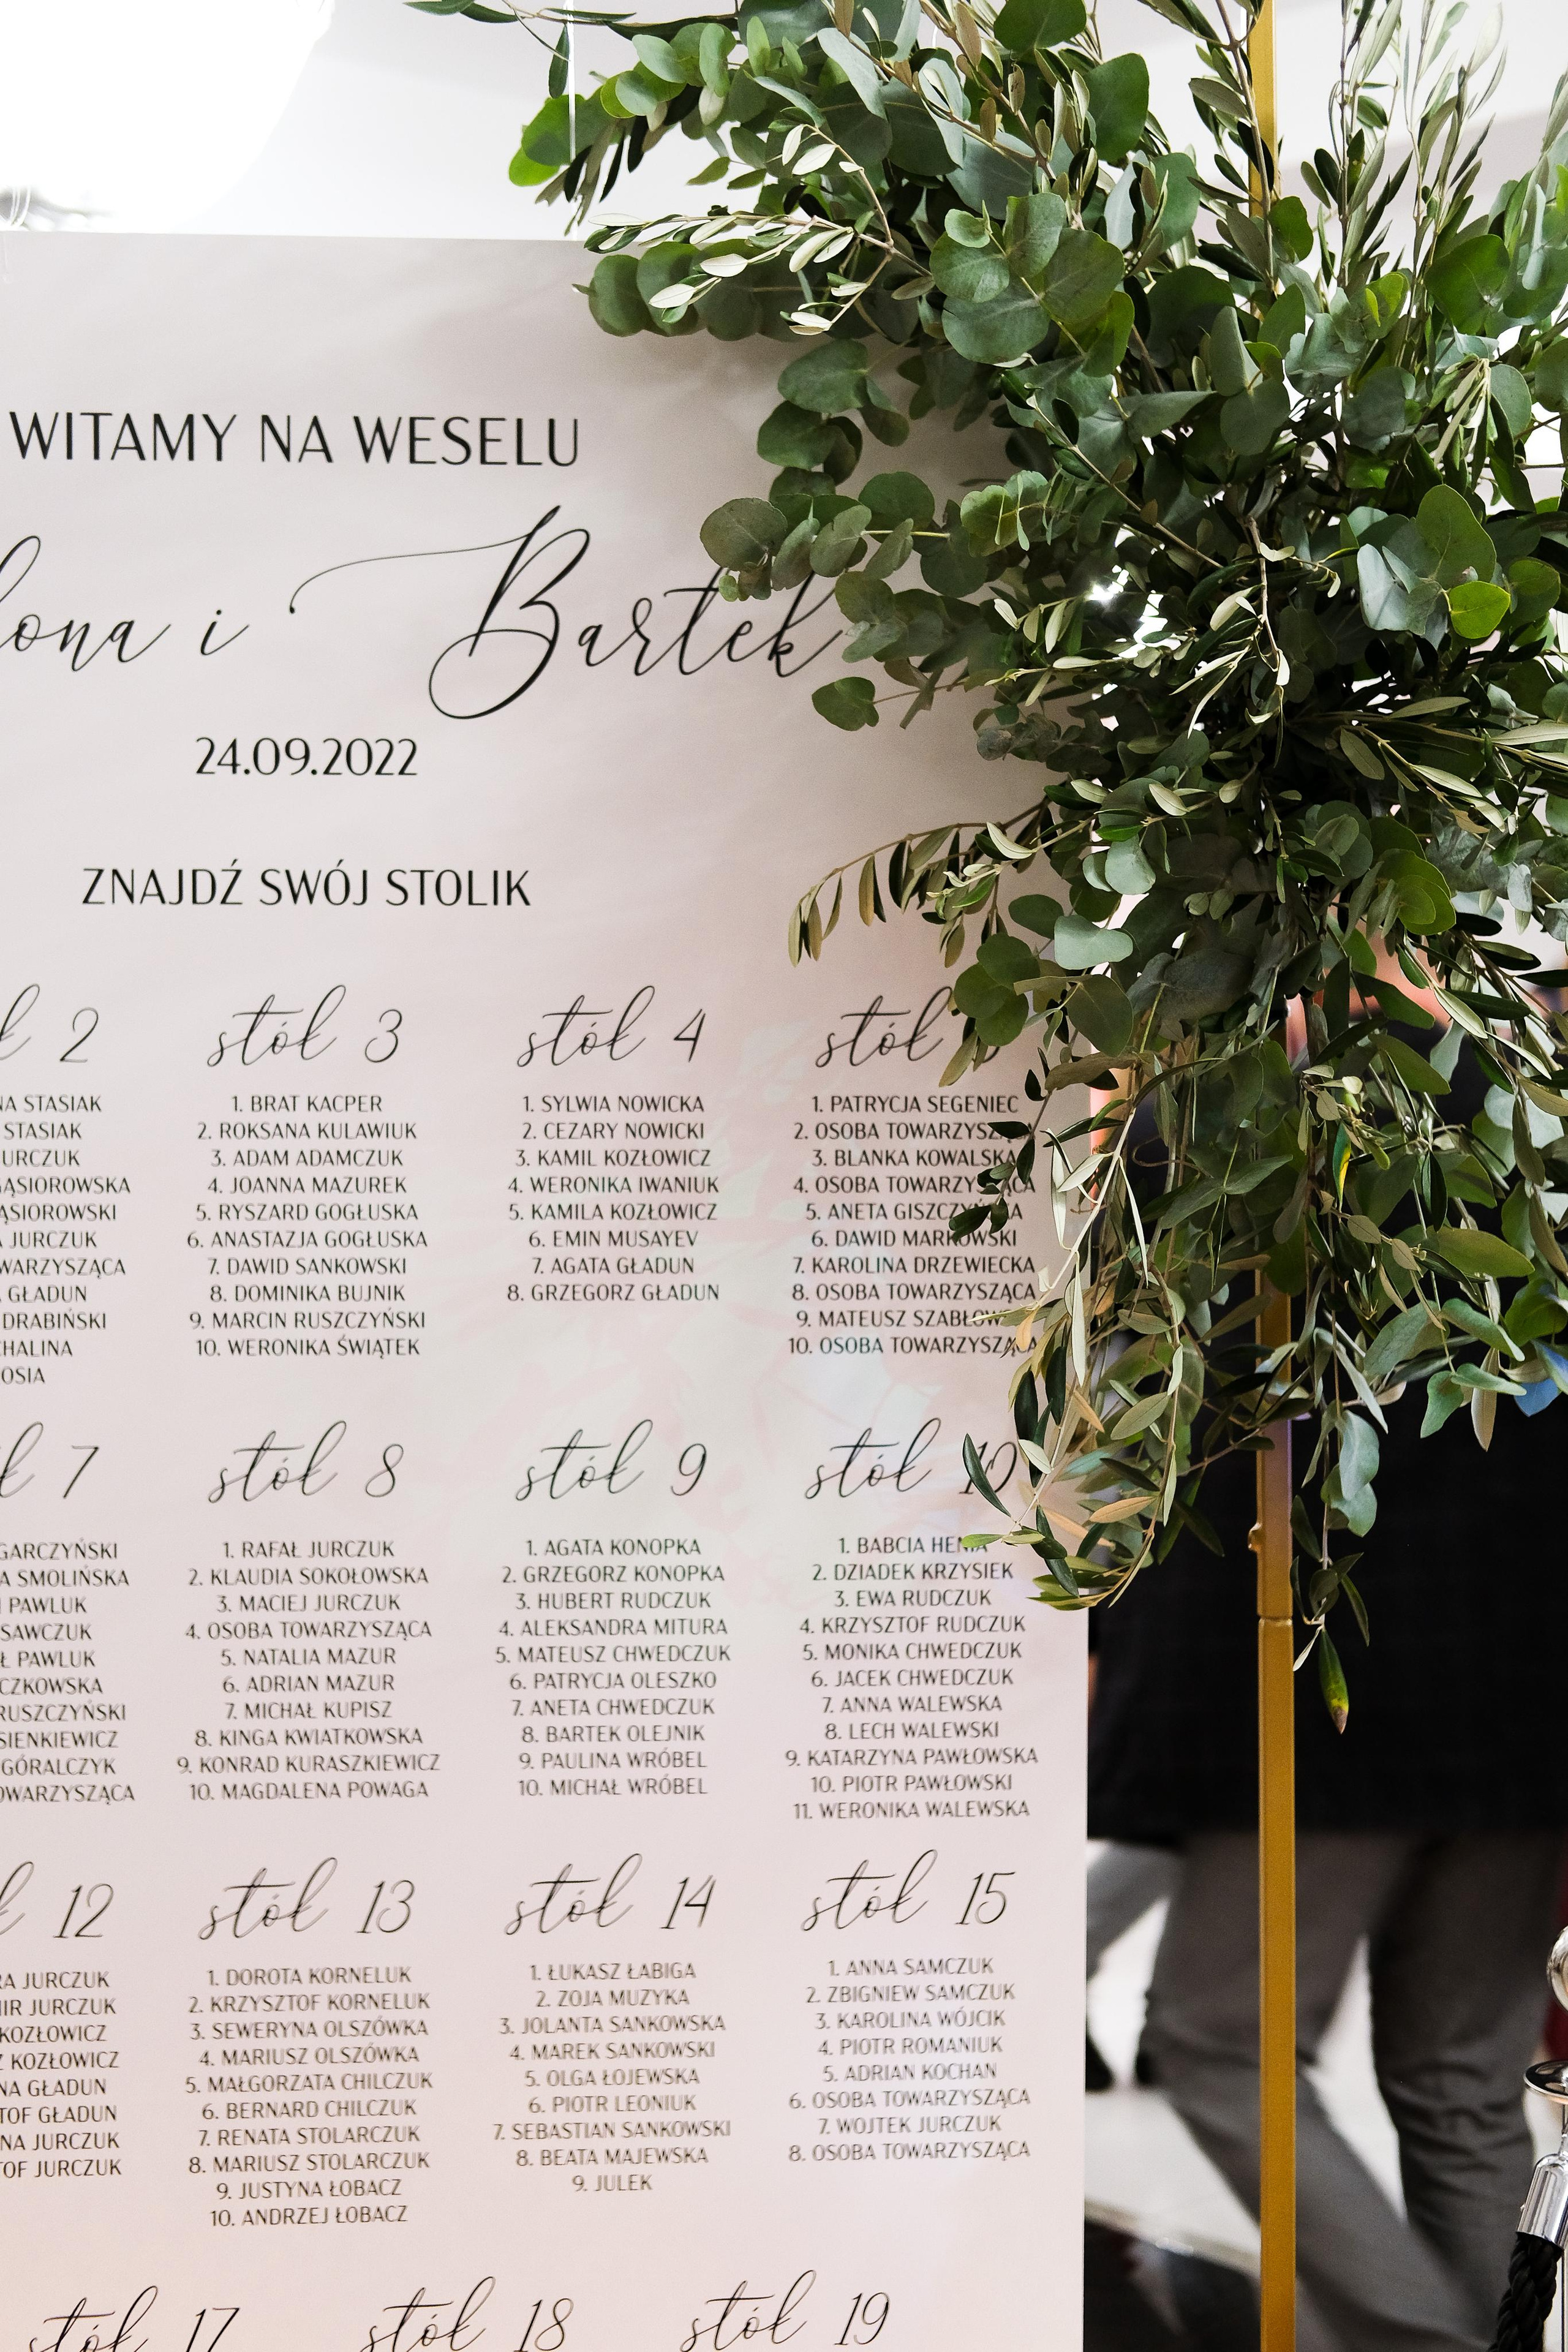 WITAMY NA WESELU
i Bartek
24.09.2022
ZNAJDŹ SWÓJ STOLIK
2
STASIAK
STASIAK
JURCZUK
DRABIŃSKI
GŁADUN
stół 3
1. BRAT KACPER
2. ROKSANA KULAWIUK
3. ADAM ADAMCZUK
4. JOANNA MAZUREK
5. RYSZARD GOGŁUSKA
6. ANASTAZJA GOGŁUSKA
7. DAWID SANKOWSKI
8. DOMINIKA BUJNIK
9. MARCIN RUSZCZYŃSKI
10. WERONIKA ŚWIĄTEK
stół 4
1. SYLWIA NOWICKA
2. CEZARY NOWICKI
3. KAMIL KOZŁOWICZ
4. WERONIKA IWANIUK
5. KAMILA KOZŁOWICZ
6. EMIN MUSAYEV
7. AGATA GŁADUN
8. GRZEGORZ GŁADUN
stół
1. PATRYCJA SEGENIEC
2. OSOBA TOWARZYSZĄCA
3. BLANKA KOWALSKA
4. OSOBA TOWARZYSZĄCA
5. ANETA
6. DAWID MARKOWSKI
7. KAROLINA DRZEWIECKA
8. OSOBA TOWARZYSZĄCA
9. MATEUSZ
10. OSOBA TOWARZYSZĄCA
7
GARCZYŃSKI
SMOLIŃSKA
PAWLUK
SAWCZUK
PAWLUK
RUSZCZYŃSKI
SIENKIEWICZ
GÓRALCZYK
stół 8
1. RAFAŁ JURCZUK
2. KLAUDIA SOKOŁOWSKA
3. MACIEJ JURCZUK
4. OSOBA TOWARZYSZĄCA
5. NATALIA MAZUR
6. ADRIAN MAZUR
7. MICHAŁ KUPISZ
8. KINGA KWIATKOWSKA
9. KONRAD KURASZKIEWICZ
10. MAGDALENA POWAGA
stół 9
1. AGATA KONOPKA
2. GRZEGORZ KONOPKA
3. HUBERT RUDCZUK
4. ALEKSANDRA MITURA
5. MATEUSZ CHWEDCZUK
6. PATRYCJA OLESZKO
7. ANETA CHWEDCZUK
8. BARTEK OLEJNIK
9. PAULINA WRÓBEL
10. MICHAŁ WRÓBEL
stół 10
1. BABCIA HENIA
2. DZIADEK KRZYSIEK
3. EWA RUDCZUK
4. KRZYSZTOF RUDCZUK
5. MONIKA CHWEDCZUK
6. JACEK CHWEDCZUK
7. ANNA WALEWSKA
8. LECH WALEWSKI
9. KATARZYNA PAWŁOWSKA
10. PIOTR PAWŁOWSKI
11. WERONIKA WALEWSKA
12
JURCZUK
JURCZUK
KOZŁOWICZ
KOZŁOWICZ
GŁADUN
GŁADUN
JURCZUK
JURCZUK
stół 13
1. DOROTA KORNELUK
2. KRZYSZTOF KORNELUK
3. SEWERYNA OLSZÓWKA
4. MARIUSZ OLSZÓWKA
5. MAŁGORZATA CHILCZUK
6. BERNARD CHILCZUK
7. RENATA STOLARCZUK
8. MARIUSZ STOLARCZUK
9. JUSTYNA ŁOBACZ
10. ANDRZEJ ŁOBACZ
stół 14
1. ŁUKASZ ŁABIGA
2. ZOJA MUZYKA
3. JOLANTA SANKOWSKA
4. MAREK SANKOWSKI
5. OLGA ŁOJEWSKA
6. PIOTR LEONIUK
7. SEBASTIAN SANKOWSKI
8. BEATA MAJEWSKA
9. JULEK
stół 15
1. ANNA SAMCZUK
2. ZBIGNIEW SAMCZUK
3. KAROLINA WÓJCIK
4. PIOTR ROMANIUK
5. ADRIAN KOCHAN
6. OSOBA TOWARZYSZĄCA
7. WOJTEK JURCZUK
8. OSOBA TOWARZYSZĄCA
stół 17
stół 18
stół 19